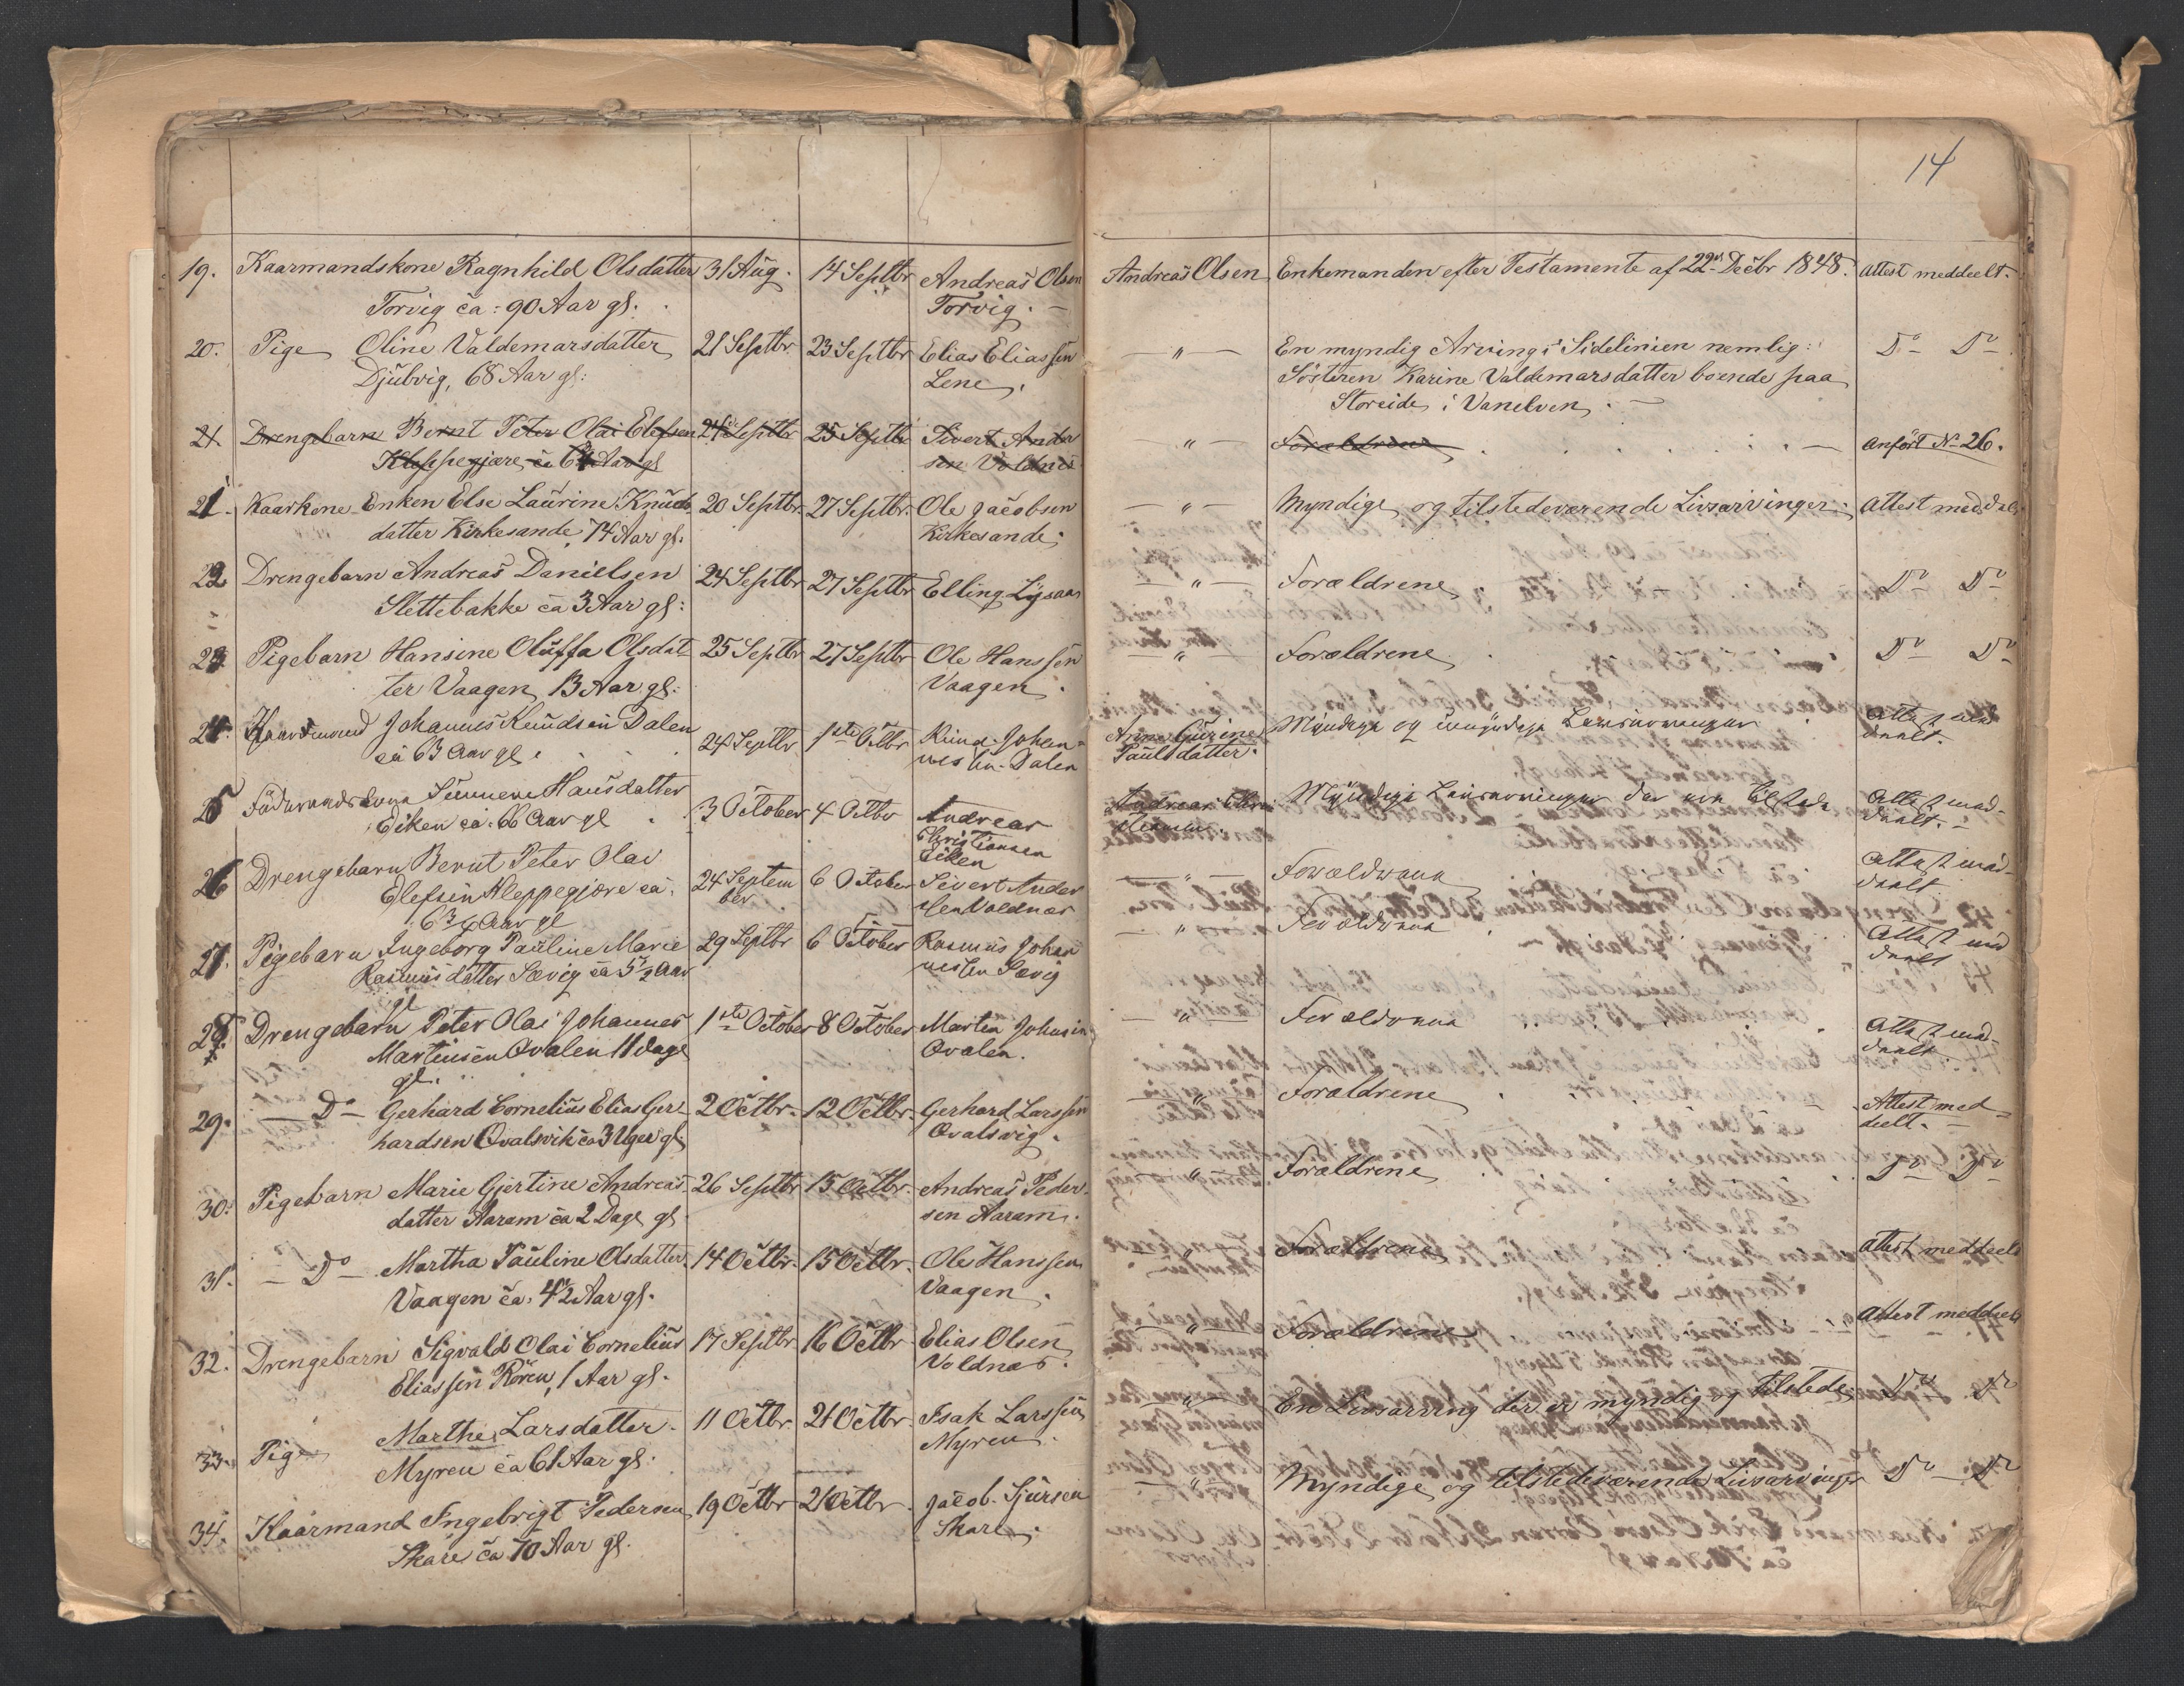 14
19. Kaarmandskone Ragnhild Olsdatter 31 Aug. 14 Septbr Andreas Olsen Andreas Olsen Enkemanden efter Testamente af 22de Decbr 1848. Attest meddeelt.
Torvig ca: 90 Aar gl. Torvig. —
20. Pige Oline Valdemarsdatter 21 Septbr. 23 Septbr Elias Eliassen — " — En myndig Arving i Sidelinien nemlig: Do Do
Djubvig, 68 Aar gl: Lene. Søsteren Karine Valdemarsdatter boende paa
Storeide i Vanelven. —
21. Drengebarn Bernt Peter Olai Elefsen 24 Septbr 25 Septbr Sivert Ander — " — Forældrene . . . . — Anført No 26.
Kleppegjære, ca 6 3/4 Aar gl sen Voldnæs
21. Kaarkone - Enken Else Laurine Knuds- 20 Septbr. 27 Septbr. Ole Jacobsen — " — Myndige og tilstedeværende Livsarvinger. Attest medd
datter Kirkesande, 74 Aar gl. Kirkesande.
22. Drengebarn Andreas Danielsen 24 Septbr 27 Septbr Elling — " — Forældrene Do Do
Slettebakke ca 3 Aar gl:
23. Pigebarn Hansine Oluffa Olsdat- 25 Septbr 27 Septbr Ole Hanssen — " — Forældrene Do Do
ter Vaagen, 13 Aar gl: Vaagen.
24. Kaarmand Johannes Knudsen Dalen 24 Septbr 1ste Octbr Knud Johan- Anne Gurine Myndige og umyndige Livsarvinger Attest med
ca 63 Aar gl. nessen Dalen Paulsdatter. deelt.
25 Føderaadskone Sunneve Hansdatter 3 October 4 Octbr Andreas Myndige Livsarvinger der er tilstede Attest med-
Eiken ca. 66 Aar gl Christiansen deelt. —
Eiken
26 Drengebarn Bernt Peter Olai 24 Septem 6 October Sivert Ander — " — Forældrene Attest med-
Elefsen Kleppegjære ca. ber sen Voldnæs deelt
6 3/4 Aar gl
27. Pigebarn Ingeborg Pauline Marie 29 Septbr 6 October Rasmus Johan — " — Forældrene Attest med
Rasmusdatter Sævig ca 5 1/2 Aar nessen Sævig deelt
gl
28. Drengebarn Peter Olai Johannes 1ste October 8 October Martin Johnsen — " — Forældrene Attest med-
Martinsen Ovalen 11 dage Ovalen. deelt
gl.
29. — Do — Gerhard Cornelius Elias Ger- 2 Octbr. 12 Octbr. Gerhard Larssen " Forældrene Attest med-
hardsen Ovalsvik ca 3 Uger gl. Ovalsvig. deelt. —
30. Pigebarn Marie Gjertine Andreas- 26 Septbr 15 Octbr. Andreas Peder- " Forældrene Do Do
datter Aaram ca 2 Dage gl. sen Aaram.
31. — Do — Martha Pauline Olsdatter 14 Octbr. 15 Octbr. Ole Hanssen " Forældrene Attest meddeelt
Vaagen ca. 4 1/2 Aar gl. Vaagen.
32. Drengebarn Sigvald Olai Cornelius 17 Septbr. 16 Octbr Elias Olsen — " — Forældrene Attest meddeelt
Eliassen Røren, 1 Aar gl. Voldnæs.
33. Pige Marthe Larsdatter 11 Octbr. 21 Octbr Isak Larssen — " — En Livsarving der er myndig og tilstede Do Do
Myren ca 61 Aar gl. Myren.
34. Kaarmand Ingebrigt Pedersen 19 Octbr 21 Octbr. Jacob Sjursen — " — Myndige og tilstedeværende Livsarvinger Do — Do
Skare ca 70 Aar gl. Skare.